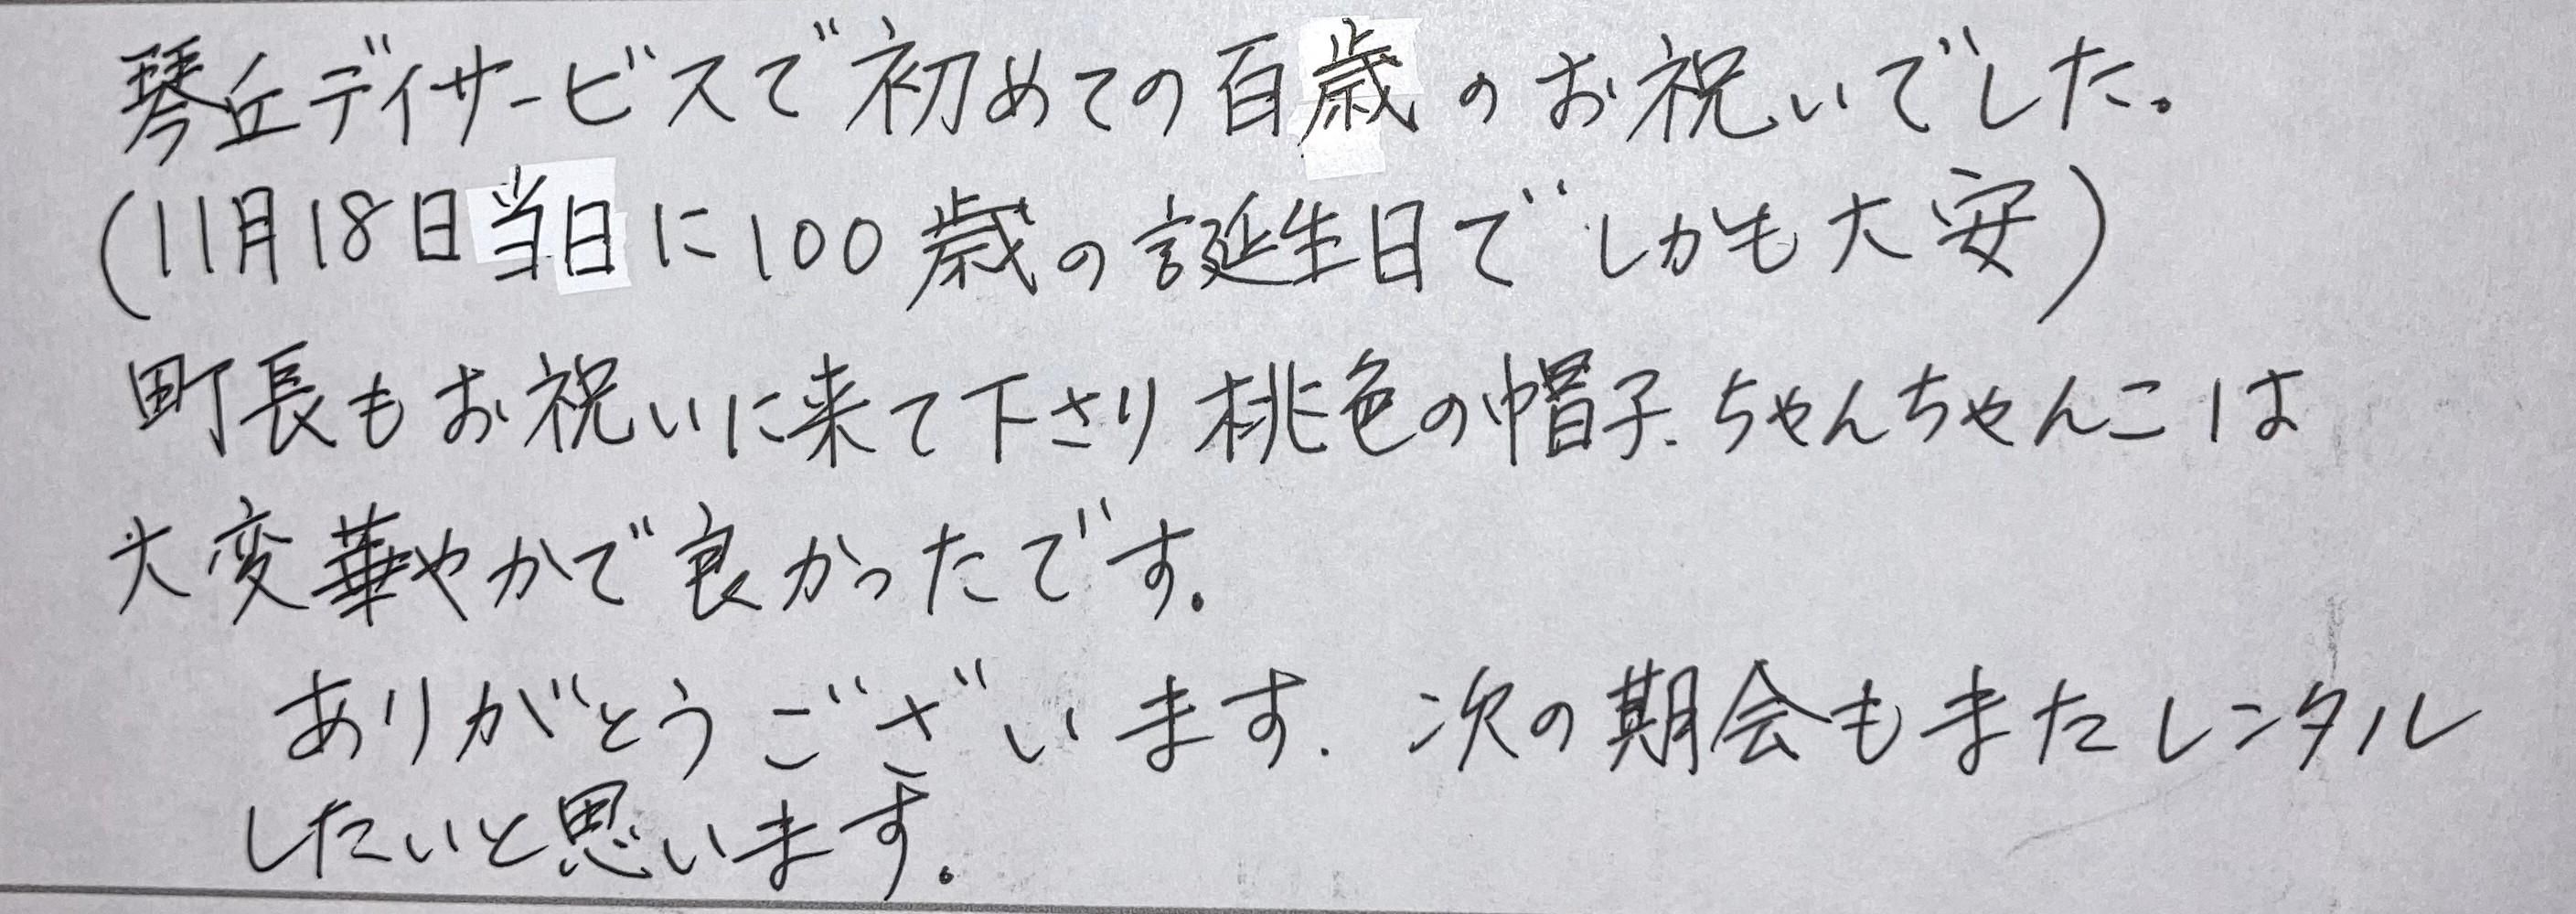 琴丘デイサービスで初めての百歳のお祝いでした。
(11月18日当日に100歳の誕生日でしかも大安)
町長もお祝いに来て下さり桃色の帽子、ちゃんちゃんこは
大変華やかで良かったです。
ありがとうございます。次の期会もまたレンタル
したいと思います。